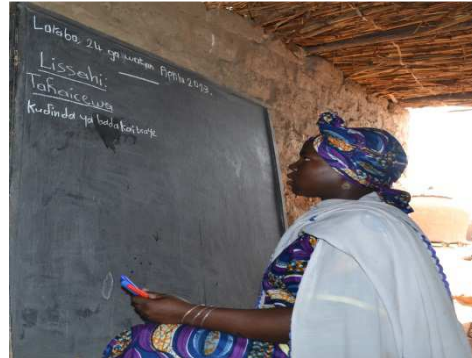 Laraba, 24 ga watan Aprilu 2013.
Lissahi:
Takaicewa
Kudinda ya bada